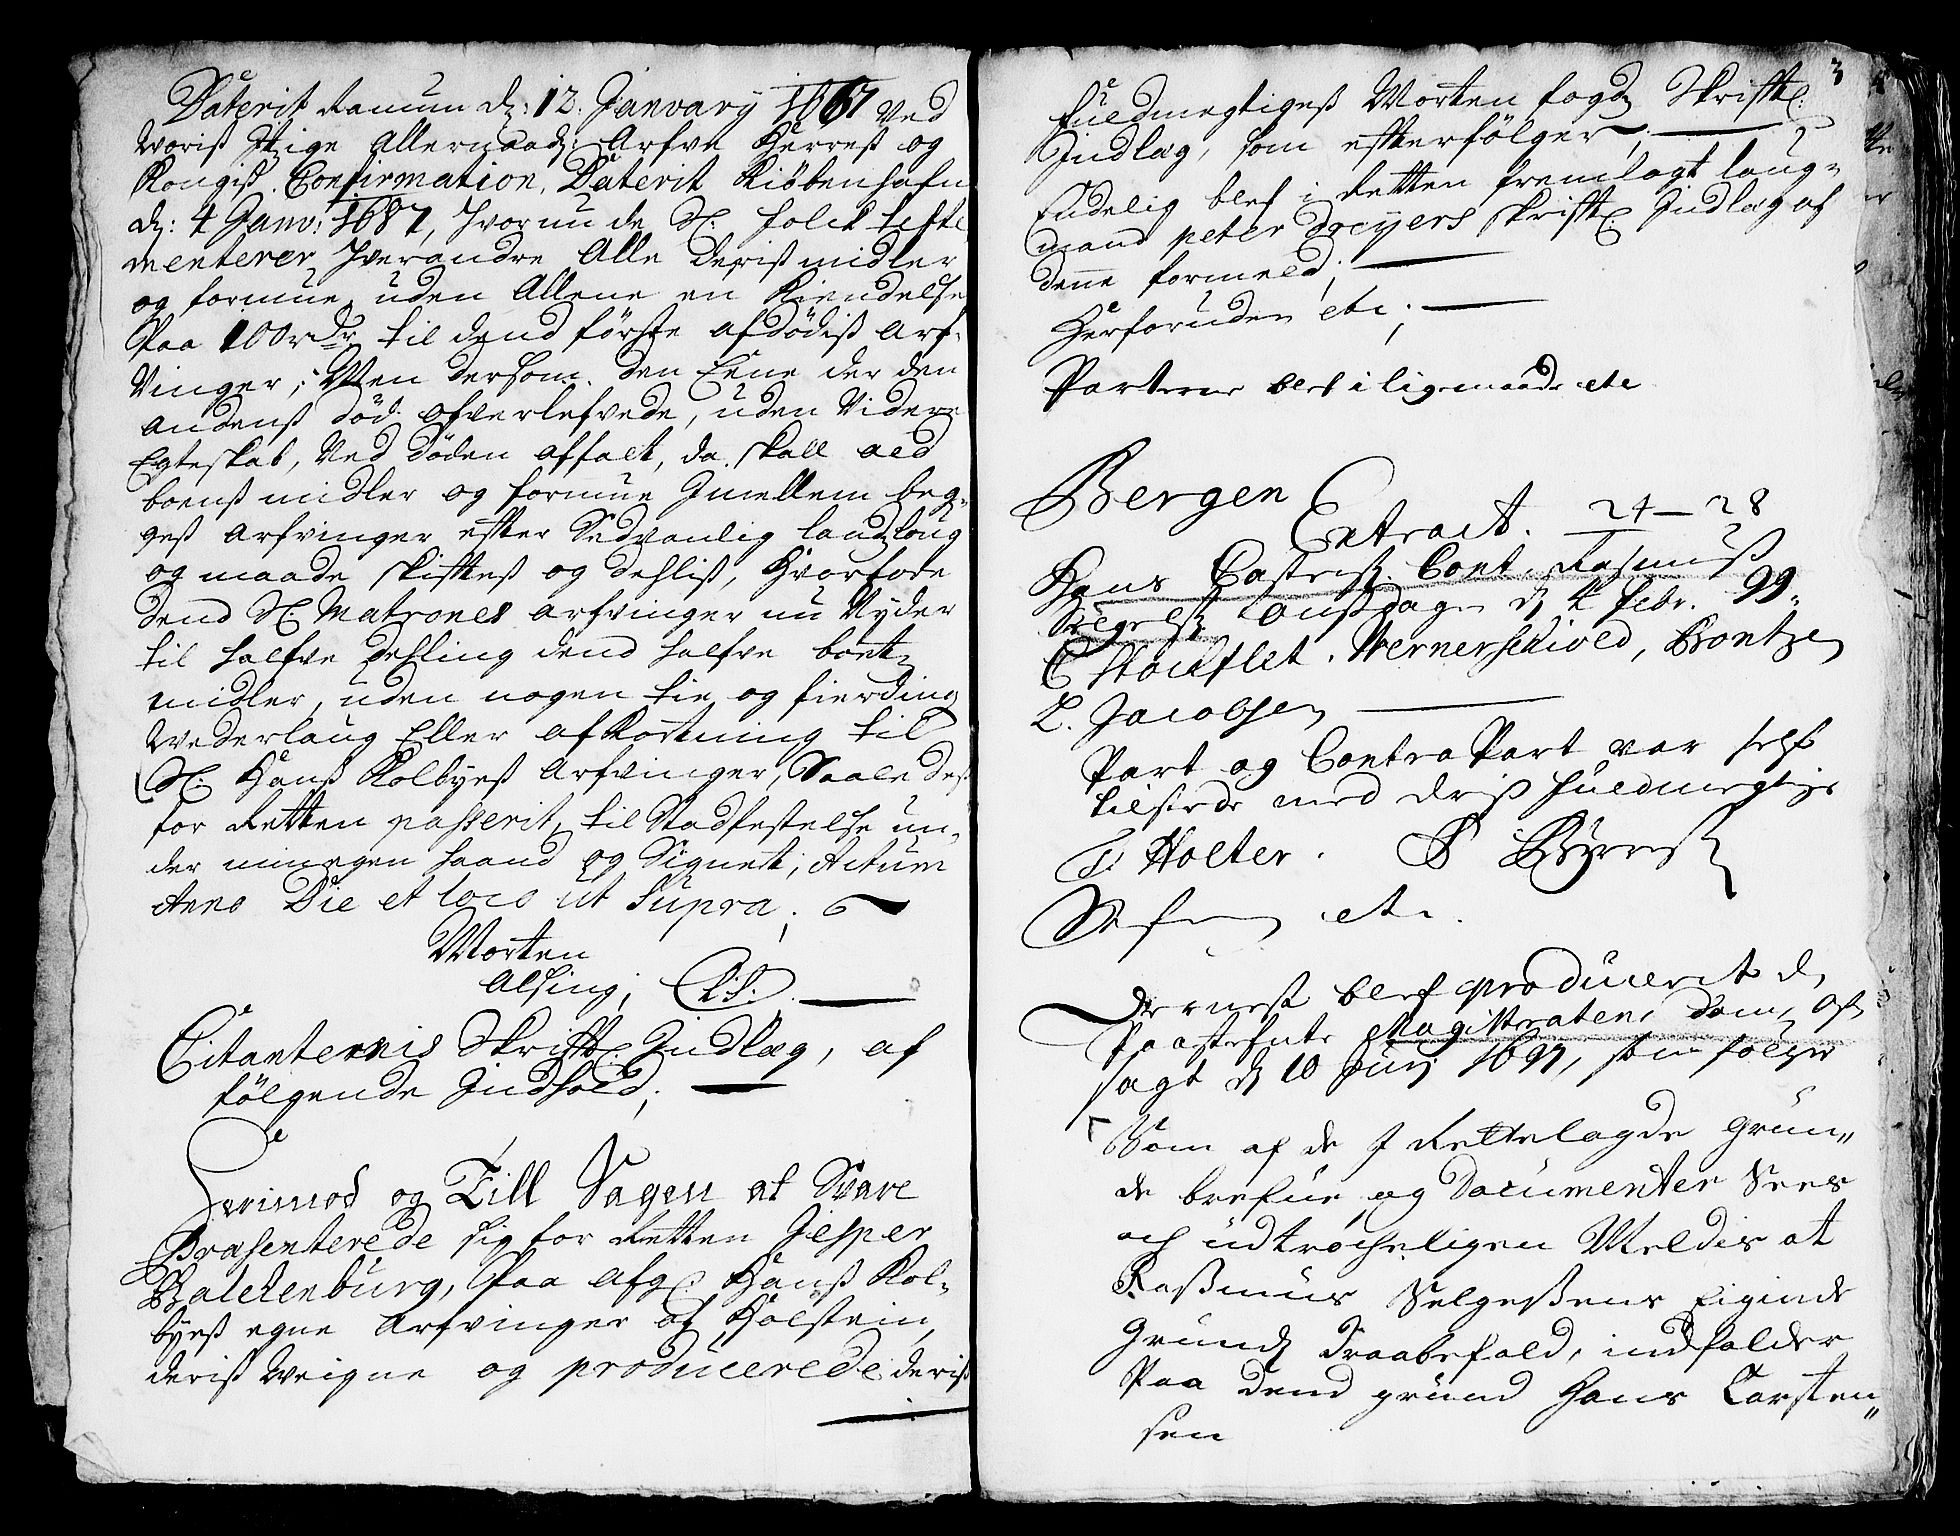 Daterit Ramum d: 12. January 1667 Ved
Woris Itzige Allernaad: Arfve Herres og
Kongis. Confirmation, Daterit Kiøbenhafn
d: 4 Janv: 1687, hvor nu de Sl: folck teste
menterer hverandre Alle deris midler
og formue, uden Allene en Kiendelse
Paa 100 rdr til dend første afdødis Arf-
Vinger; Men dersom den Eene der den
Andens død ofverlefvede, uden Videre
Egteskab, Ved døden affalt, da skall ald
boens midler og formue Imellem beg-
ges Arfvinger efter Sedvanlig landzloug
og maade skifftes og dehlis, Hvorfore
dend Sl Matrones Arfvinger nu Nyder
til halfve dehling dend halfve boets
midler, uden nogen tie og fierding
Wederlaug Eller afkortning til
Sl: Hans Kolbyes Arfvinger, Saaledes
for Retten passerit, til Stadfestelse un-
der min egen haand og Signet; Actum
Anno Die et loco ut supra;
Morten
Alsing; (L:S:)
Citanternis Skrifftl: Indlæg, af
følgende Indhold;
Herimod og Till Sagen at Svare
Præsenterede sig for Retten Jesper
Balckenburg, Paa Afg: Hans Kol-
byes egne Arfvinger af Holstein,
deris Weigne og producerede deris
3
fuldmegtiges Morten fogd Skrifftl:
Indlæg, som effterfølger;
Endelig blef i Retten fremlagt laug-
mand peter Dreyers skrifftl Indlæg af
denne formeld;
Herforuden etc;
Parterne blef i ligemaade etc
Bergen
Extract. 24-28
Hans Castens. Cont. Rasmus
Selgels Onssdagen d 4 febr. 99.
C Stockflet. Wernerschiold, Bontzen
L. Jacobsen
Part og Contra Part var self
tilstede med deris fuldmegtige
T Holter. S
etc.
Dernest blef produceret d
Paastefnte Magistratens dom, Af-
sagt d 10 Juni 1697, som følger
Som af de I Rettelagde Grun-
de brefue og Documenter Sees
och udtrøcheligen Meldis at
Rasmus Selgesens Eigende
Grund Draabefald, indfalder
Paa dend grund Hans Carsten-
sen